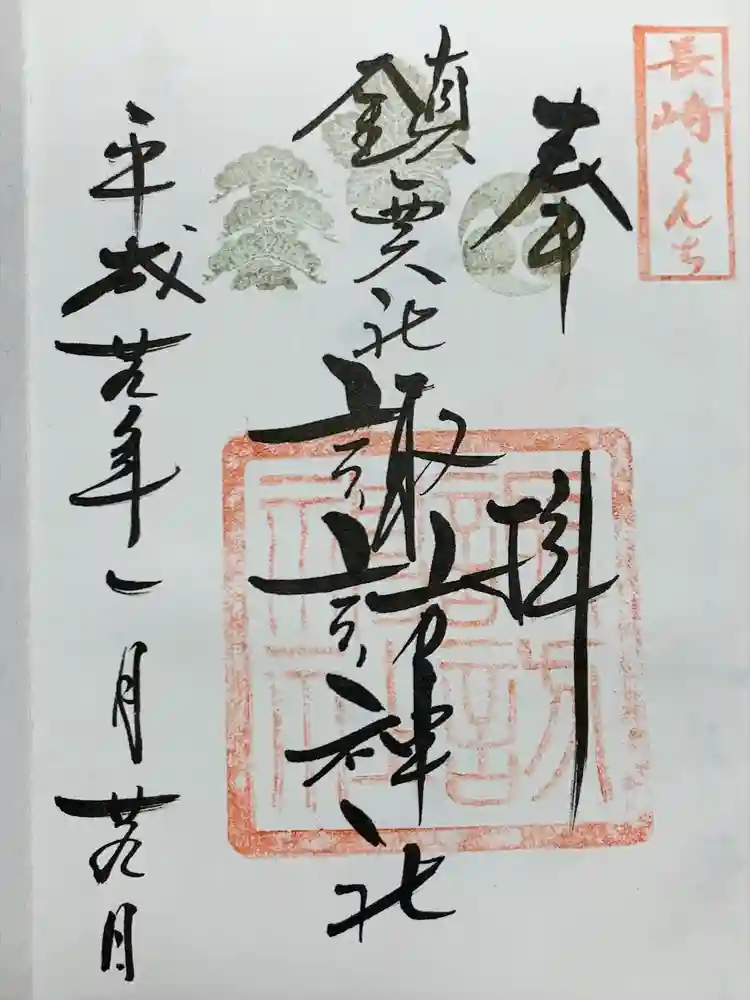 長崎くんち
奉拝
鎮西大社
諏訪神社
平成廿九年一月廿九日